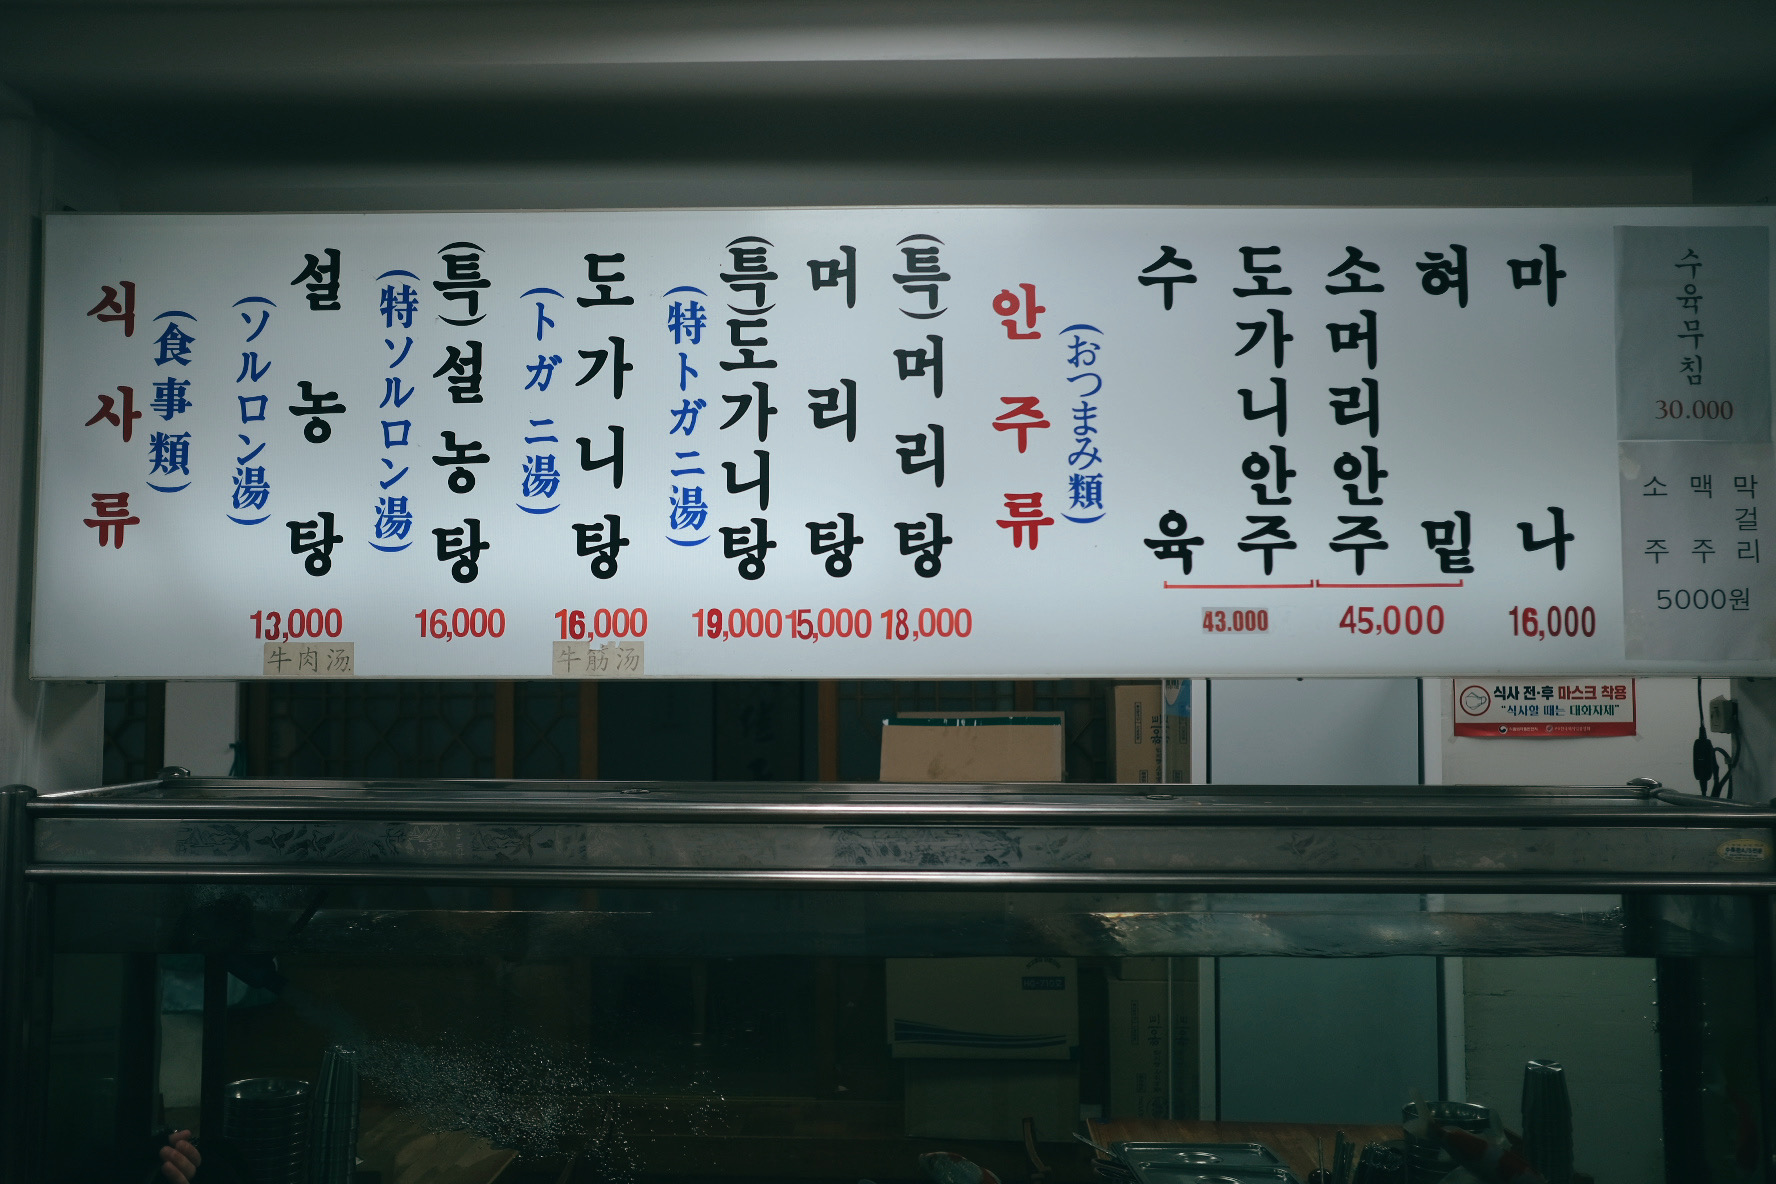 식사류
(食事類)
설농탕
(ソルロン湯)
13,000
牛肉汤
(특)설농탕
(特ソルロン湯)
16,000
도가니탕
(トガニ湯)
16,000
牛筋汤
(특)도가니탕
(特トガニ湯)
19,000
머리탕
15,000
(특)머리탕
18,000
안주류
(おつまみ類)
수육
도가니안주
43.000
소머리안주
혀밑
45,000
마나
16,000
수육무침
30.000
소주
맥주
막걸리
5000원
식사 전·후 마스크 착용
"식사할 때는 대화자제"